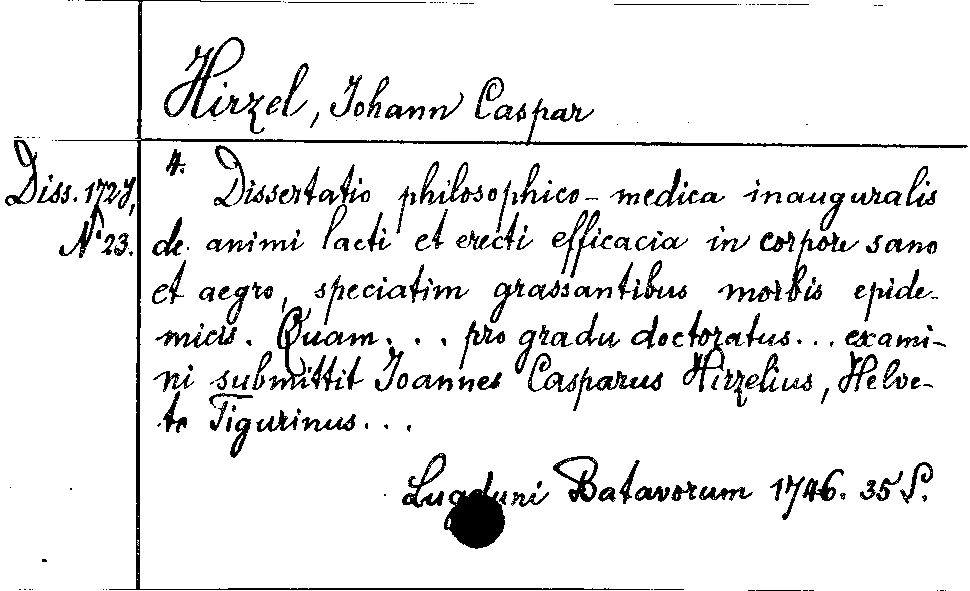 Hirzel, Johann Caspar
Diss. 1727,
N° 23.
4. Dissertatio philosophico-medica inauguralis
de animi laeti et erecti efficacia in corpore sano
et aegro, speciatim grassantibus morbis epide-
micis. Quam... pro gradu doctoratus... exami-
ni submittit Joannes Casparus Hirzelius, Helve-
to Tigurinus...
Lugduni Batavorum 1746. 35 S.